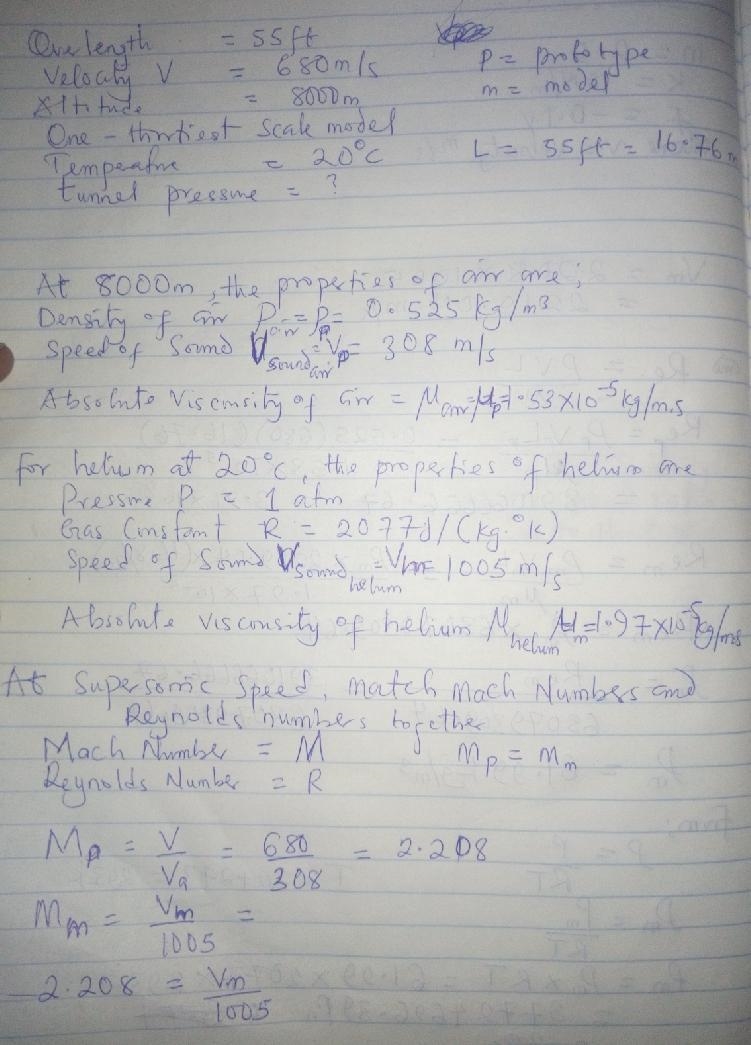 Over length = 55ft
Velocity V = 680m/s
P = prototype
m = model
Altitude = 8000m
One - thirtiest scale model
Temperature = 20°c
L = 55ft = 16.76m
tunnel pressure = ?
At 8000m, the properties of air are;
Density of air ρair = ρp = 0.525 kg/m3
Speed of Sound Vsound air = Vp = 308 m/s
Absolute Viscousity of air = Mair = Mp = 1.53x10-5 kg/m.s
for helium at 20°c, the properties of helium are
Pressure P = 1 atm
Gas Constant R = 2077J/(kg.°k)
Speed of Sound Vsound helium = 1005 m/s
Absolute viscousity of helium Mhelium Mm=1.97x10-5kg/ms
At Supersonic Speed, match Mach Numbers and
Reynolds numbers together
Mach Number = M Mp = Mm
Reynolds Number = R
Mp = V/Va = 680/308 = 2.208
Mm = Vm/1005 =
2.208 = Vm/1005